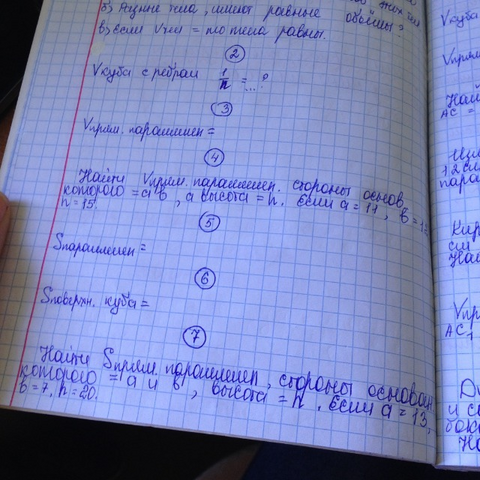 б) Равные тела, имеют равные объёмы?
в) если Vтел = то тела равны.
2
Vкуба с ребром 1/n = ...?
3
Vпрям. параллелеп =
4
Найти Vпрям. параллелеп. стороны основ.
которого = a в, а высота = h. Если a = 11, в = 12
h = 15.
5
Sпараллелеп =
6
Sповерхн. куба =
7
Найти Sпрям. параллелеп, стороны основан
которого = a и в, высота = h. Если a = 13,
в = 7, h = 20.
Vкуба
Vпрям
Най
AC =
12 см
пара
Кир
см
Най
Vпр
AC1
и с
бок
На